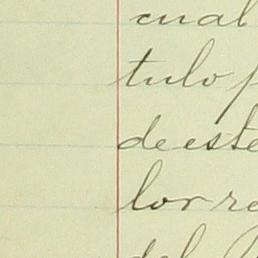 cual
tulo p
de este
lor re
del